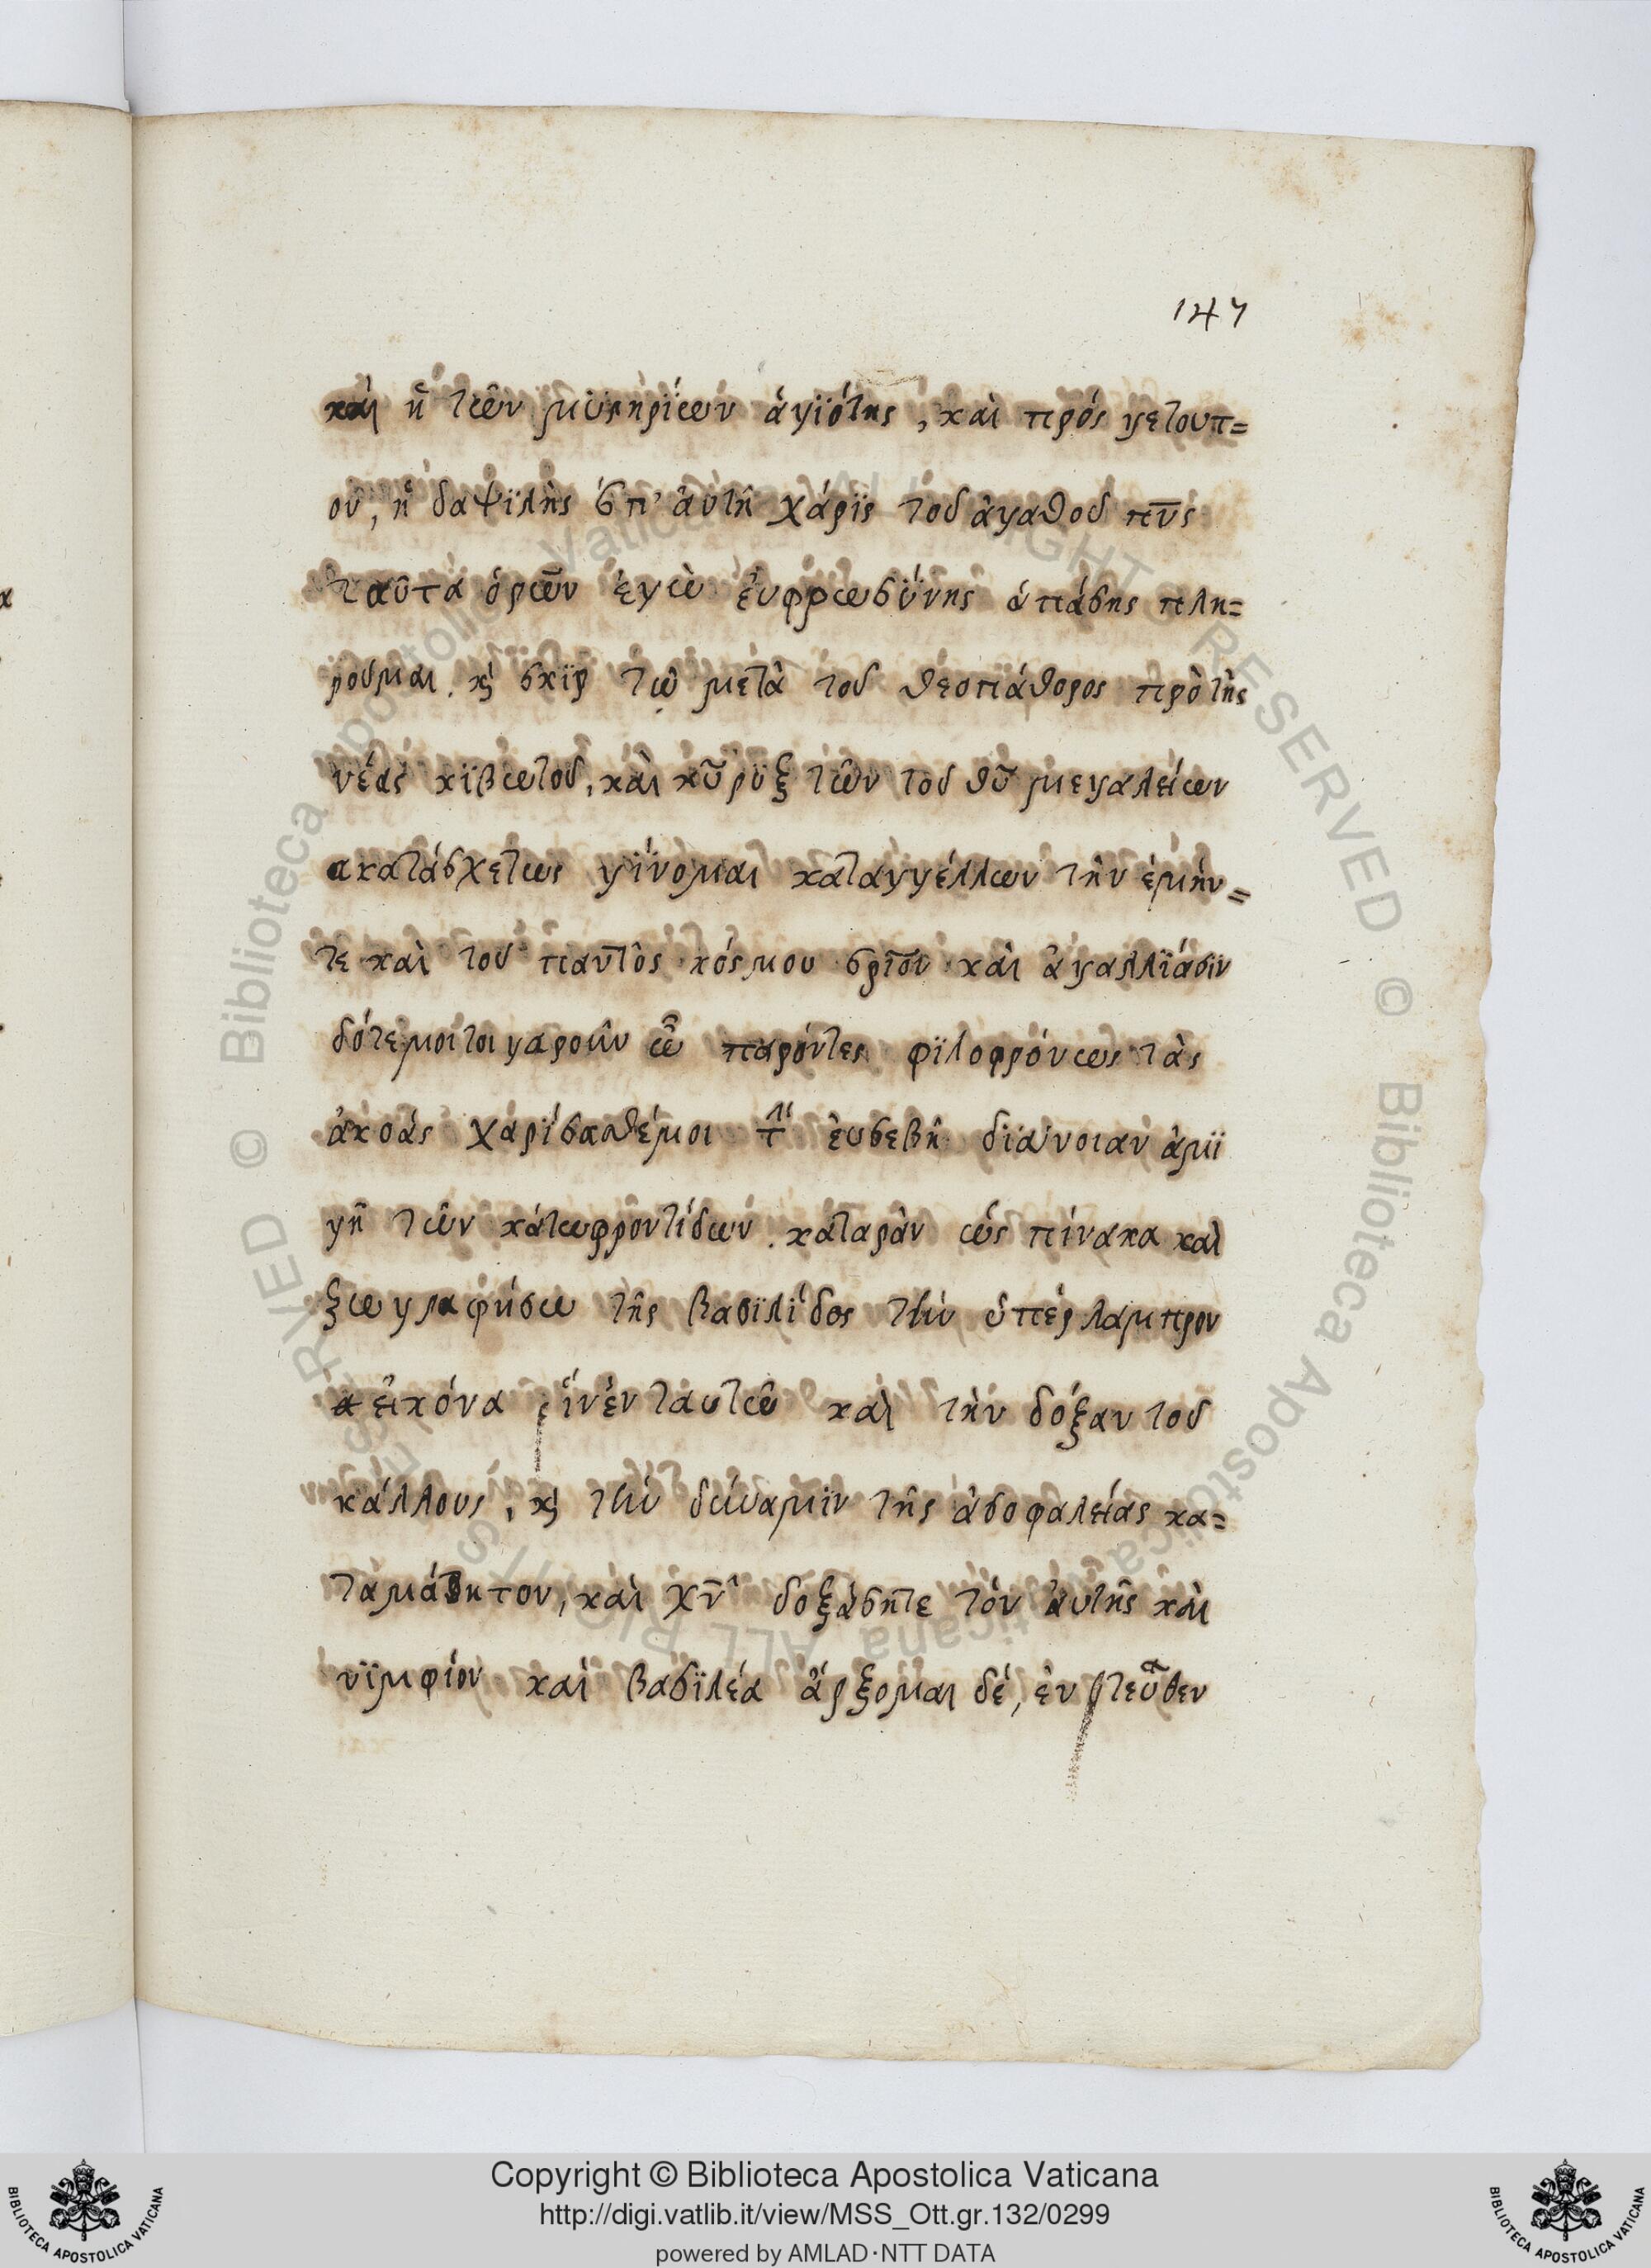 147
καὶ ἡ τῶν μϋστηρΐων ἁγϊότης, καὶ πρός γετουτ=
ου, ἡ δαψϊλὴς ἐπ' ἀυτῆ χάρϊς τοῦ ἀγαθοῦ π̅ν̅ς
ταῦτα ὁρῶν ἐγὼ ἐυφρωσΰνης ἁπάσης πλη=
ροῦμαι. κὶ σκϊρ τῶ μετὰ τοῦ θεοπάθορος πρὸ τῆς
νέας κϊβωτοῦ, καὶ κῦρϋξ τῶν τοῦ θ̅υ̅ μεγαλείων
ακατάσχετως γΐνομαι καταγγέλλων τὴν ἐμήν=
τε καὶ τοῦ παντὸς κόσμου καὶ ἀγαλλΐάσϊν
δότεμοιτοιγαροῦν ὦ παρόντες φϊλοφρόνως τὰς
ἀκοάς χαρίσασθέμοι ἐυσεβῆ δϊάνοιαν ἀμϊ
γῆ τῶν κάτωφροντίδων. καταρὰν ὡς πίνακα καὶ
ξωγραφήσω τῆς βασϊλίδος τὴν ὑπέρλαμπρον
εἰκόνα ἵνἐνταυτῶ καὶ τὴν δόξαν τοῦ
κάλλους, κὶ τὴν δύναμϊν τῆς ἀσοφαλείας κα=
ταμάθητον, καὶ χ̅ν̅ δοξάσητε τόν ἀυτῆς καὶ
νϊμφίον καὶ βασϊλέα ἄρξομαι δέ, ἐντεῦθεν
Copyright © Biblioteca Apostolica Vaticana
http://digi.vatlib.it/view/MSS_Ott.gr.132/0299
powered by AMLAD·NTT DATA